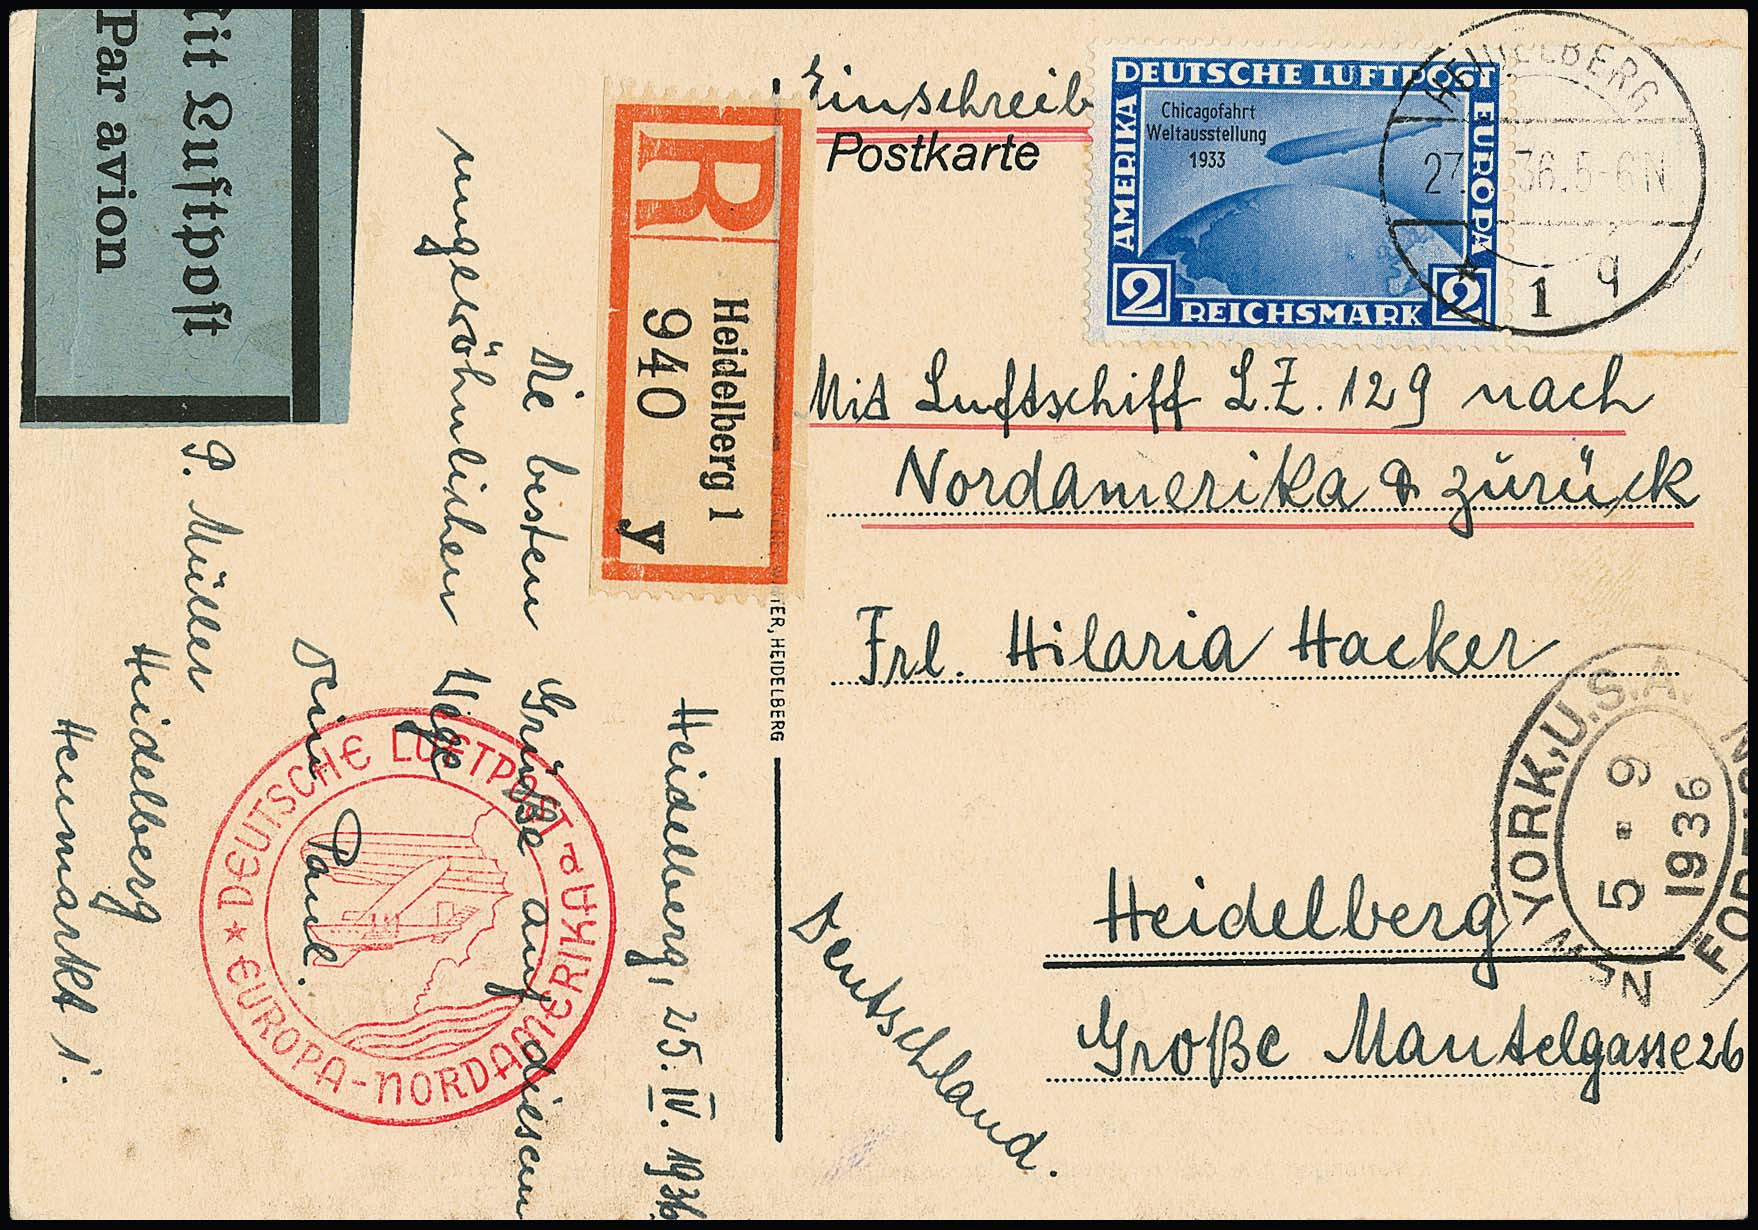 Mit Luftpost
Par avion
Einschreib
Postkarte
DEUTSCHE LUFTPOST
AMERIKA
EUROPA
Chicagofahrt
Weltausstellung
1933
2
REICHSMARK
2
HEIDELBERG
27. 36.5-6N
1 q
R
Heidelberg 1
940
y
Mit Luftschiff L.Z. 129 nach
Nordamerika & zurück
Frl. Hilaria Hacker
Heidelberg
Große Mantelgasse 26
Deutschland.
TER, HEIDELBERG
Heidelberg, 25. IV. 1936
Die besten Grüße auf diesem
ungewöhnlichen Wege
Dein Paul.
P. Müller
Heidelberg
Heumarkt 1.
DEUTSCHE LUFTPOST
EUROPA-NORDAMERIKA
YORK, U.S.A.
5-9
1936